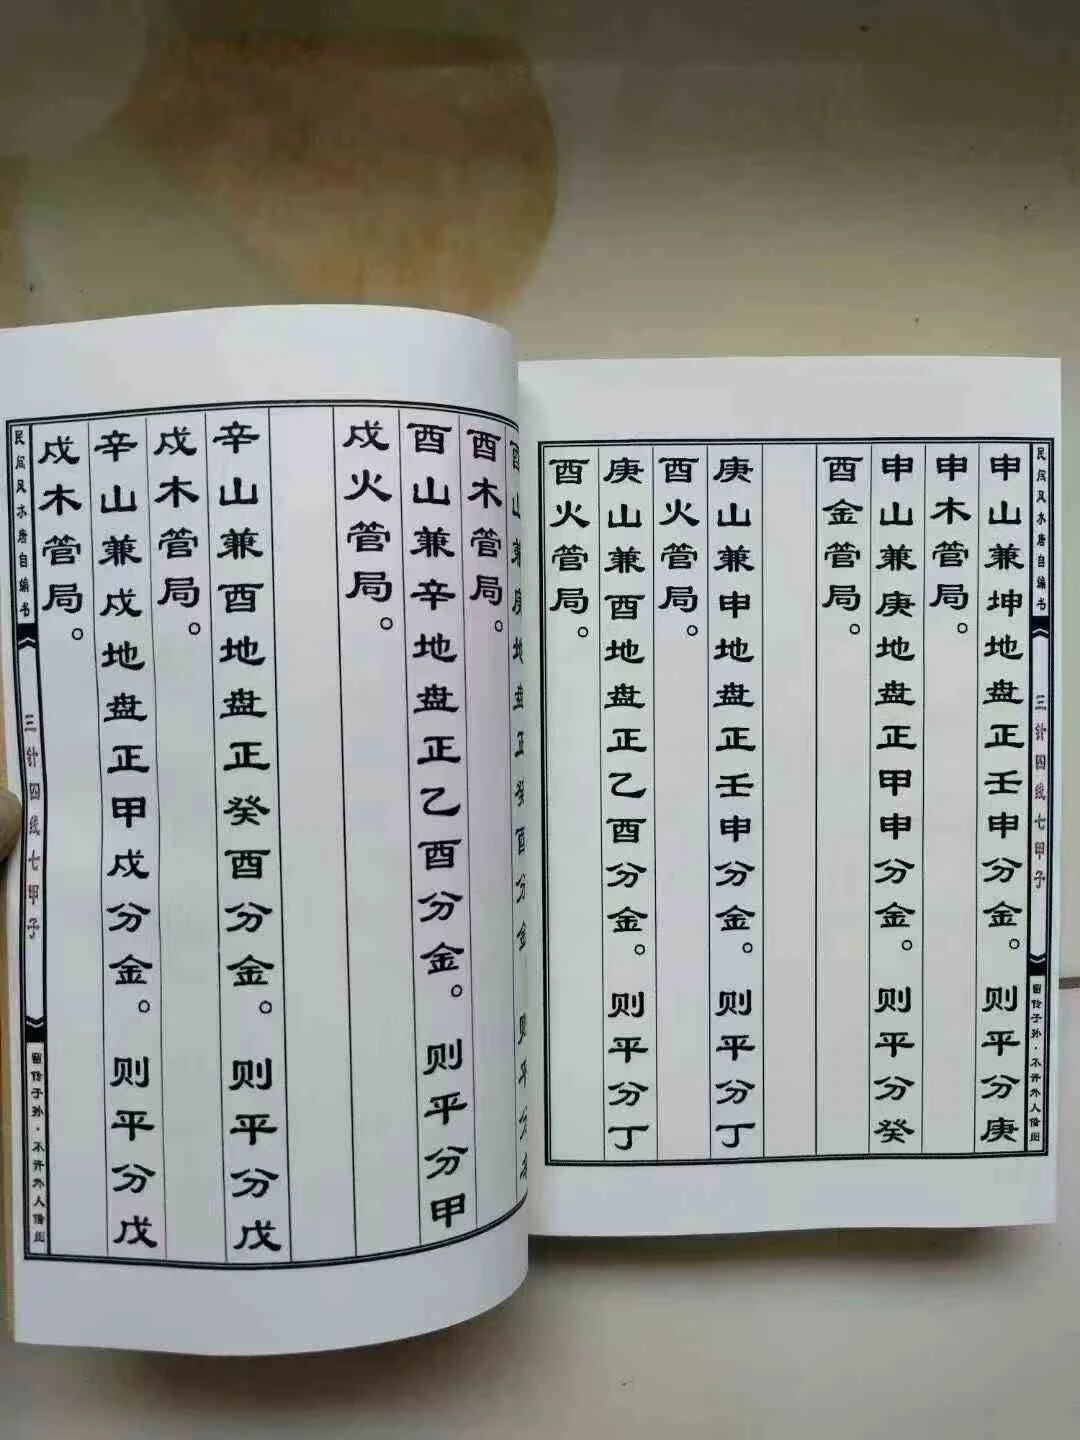 民间风水唐自编书
三针四线七甲子
留传子孙·不许外人借阅
申山兼坤地盘正壬申分金。则平分庚
申木管局。
申山兼庚地盘正甲申分金。则平分癸
酉金管局。
庚山兼申地盘正壬申分金。则平分丁
酉火管局。
庚山兼酉地盘正乙酉分金。则平分丁
酉火管局。
酉山兼庚地盘正癸酉分金。则平分
酉木管局。
酉山兼辛地盘正乙酉分金。则平分甲
戍火管局。
辛山兼酉地盘正癸酉分金。则平分戊
戍木管局。
辛山兼戍地盘正甲戍分金。则平分戊
戍木管局。
民间风水唐自编书
三针四线七甲子
留传子孙·不许外人借阅